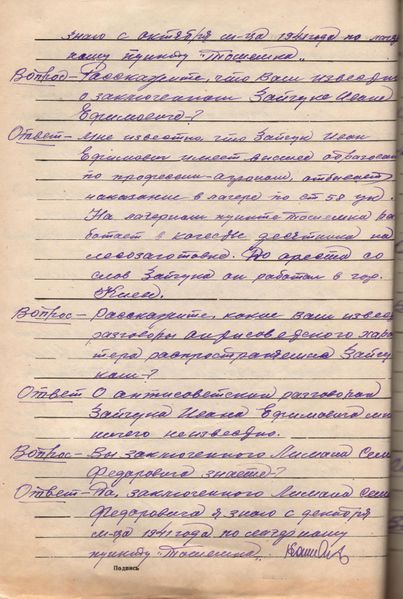 знаю с октября м-ца 1941 года по лагер
ному пункту "Тосиемка"..
Вопрос - Расскажите, что Вам известно
о заключенном Зайчуке Иване
Ефимовиче?
Ответ - Мне известно, что Зайчук Иван
Ефимович имеет высшее образован
по профессии - агроном, отбывает
наказание в лагере по ст 58 ук.
На лагерном пункте Тосиемка ра
ботает в качестве десятника на
лесозаготовке. До ареста со
слов Зайчука он работал в гор.
Киев.
Вопрос - Расскажите, какие Вам извес
разговоры антисоветского харак
тера распространяемые Зайчу
ком - ?
Ответ О антисоветских разговорах
Зайчука Ивана Ефимовича мне
ничего неизвестно.
Вопрос - Вы заключенного Лимана Семе
Федоровича знаете - ?
Ответ - Да, заключенного Лимана Семе
Федоровича я знаю с декабря
м-ца 1941 года по лагерному
пункту "Тосиемка"..
Подпись